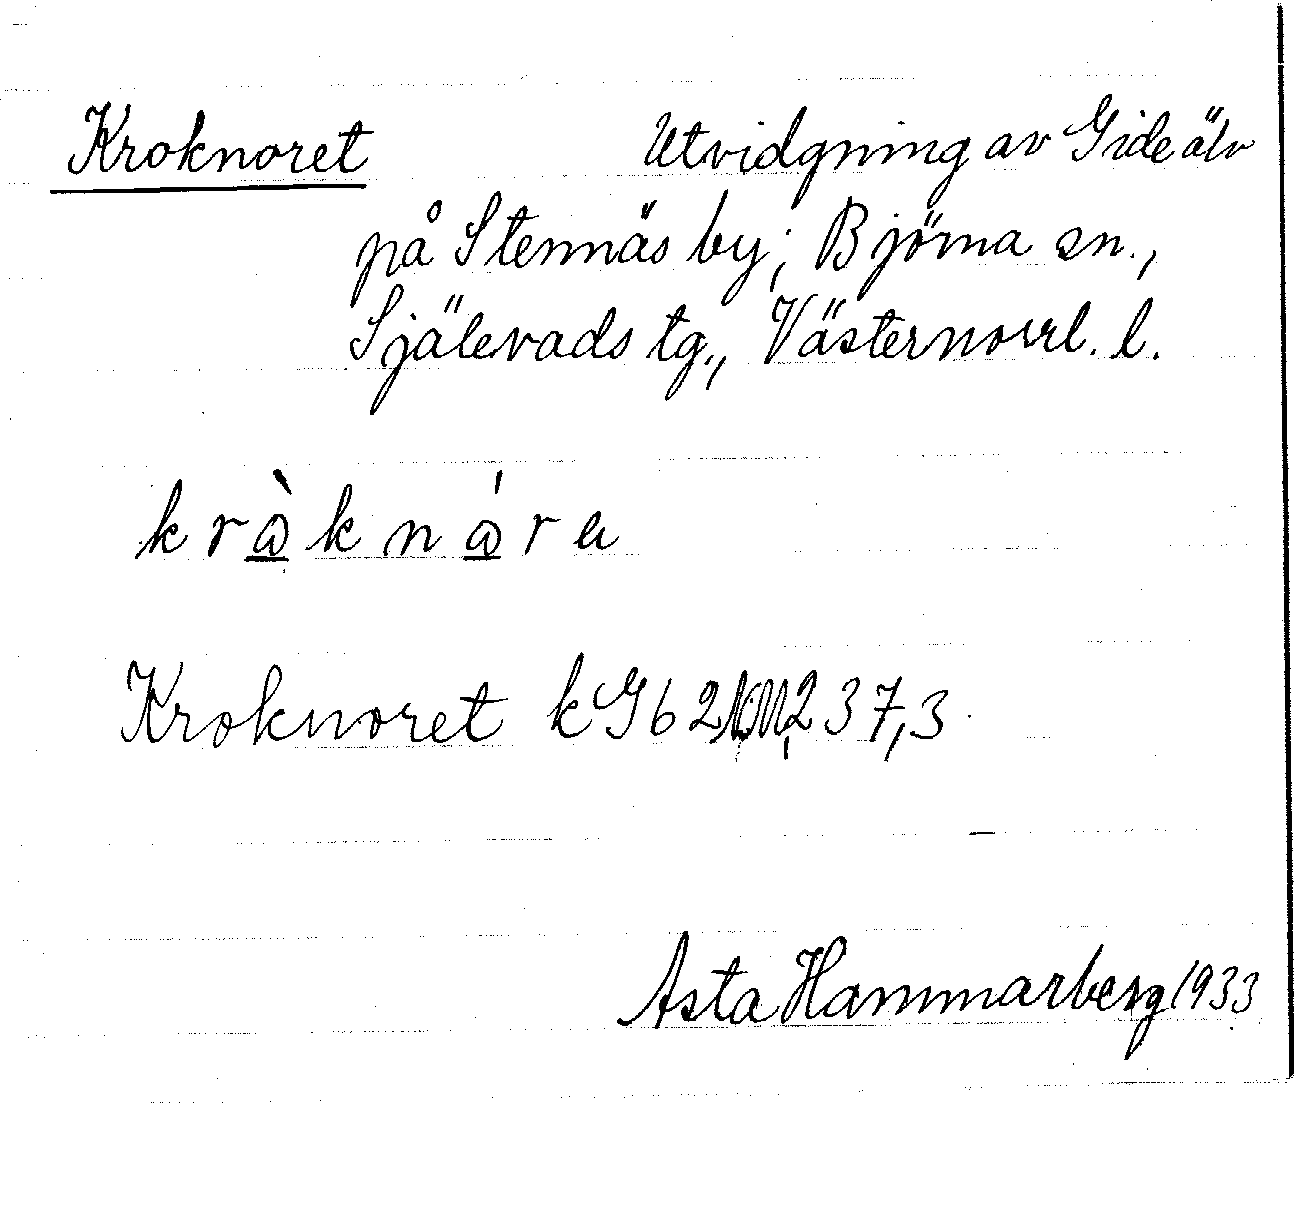 Kroknoret Utvidgning av Gideälv
på Stennäs by; Björna sn.,
Själevads tg., Västernorrl. l.
kròknóra
Kroknoret kG62 237,3
Asta Hammarberg 1933